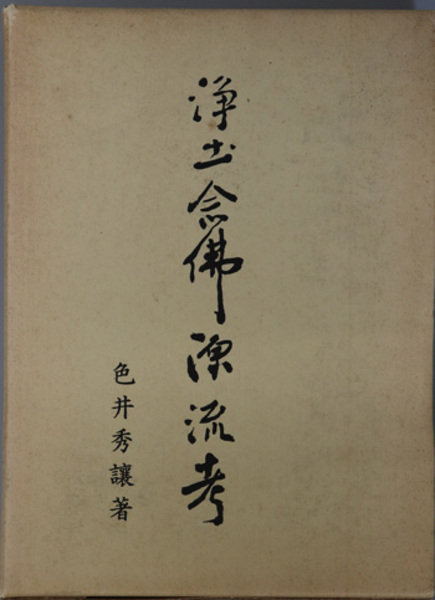 浄土念佛源流考
色井秀讓著